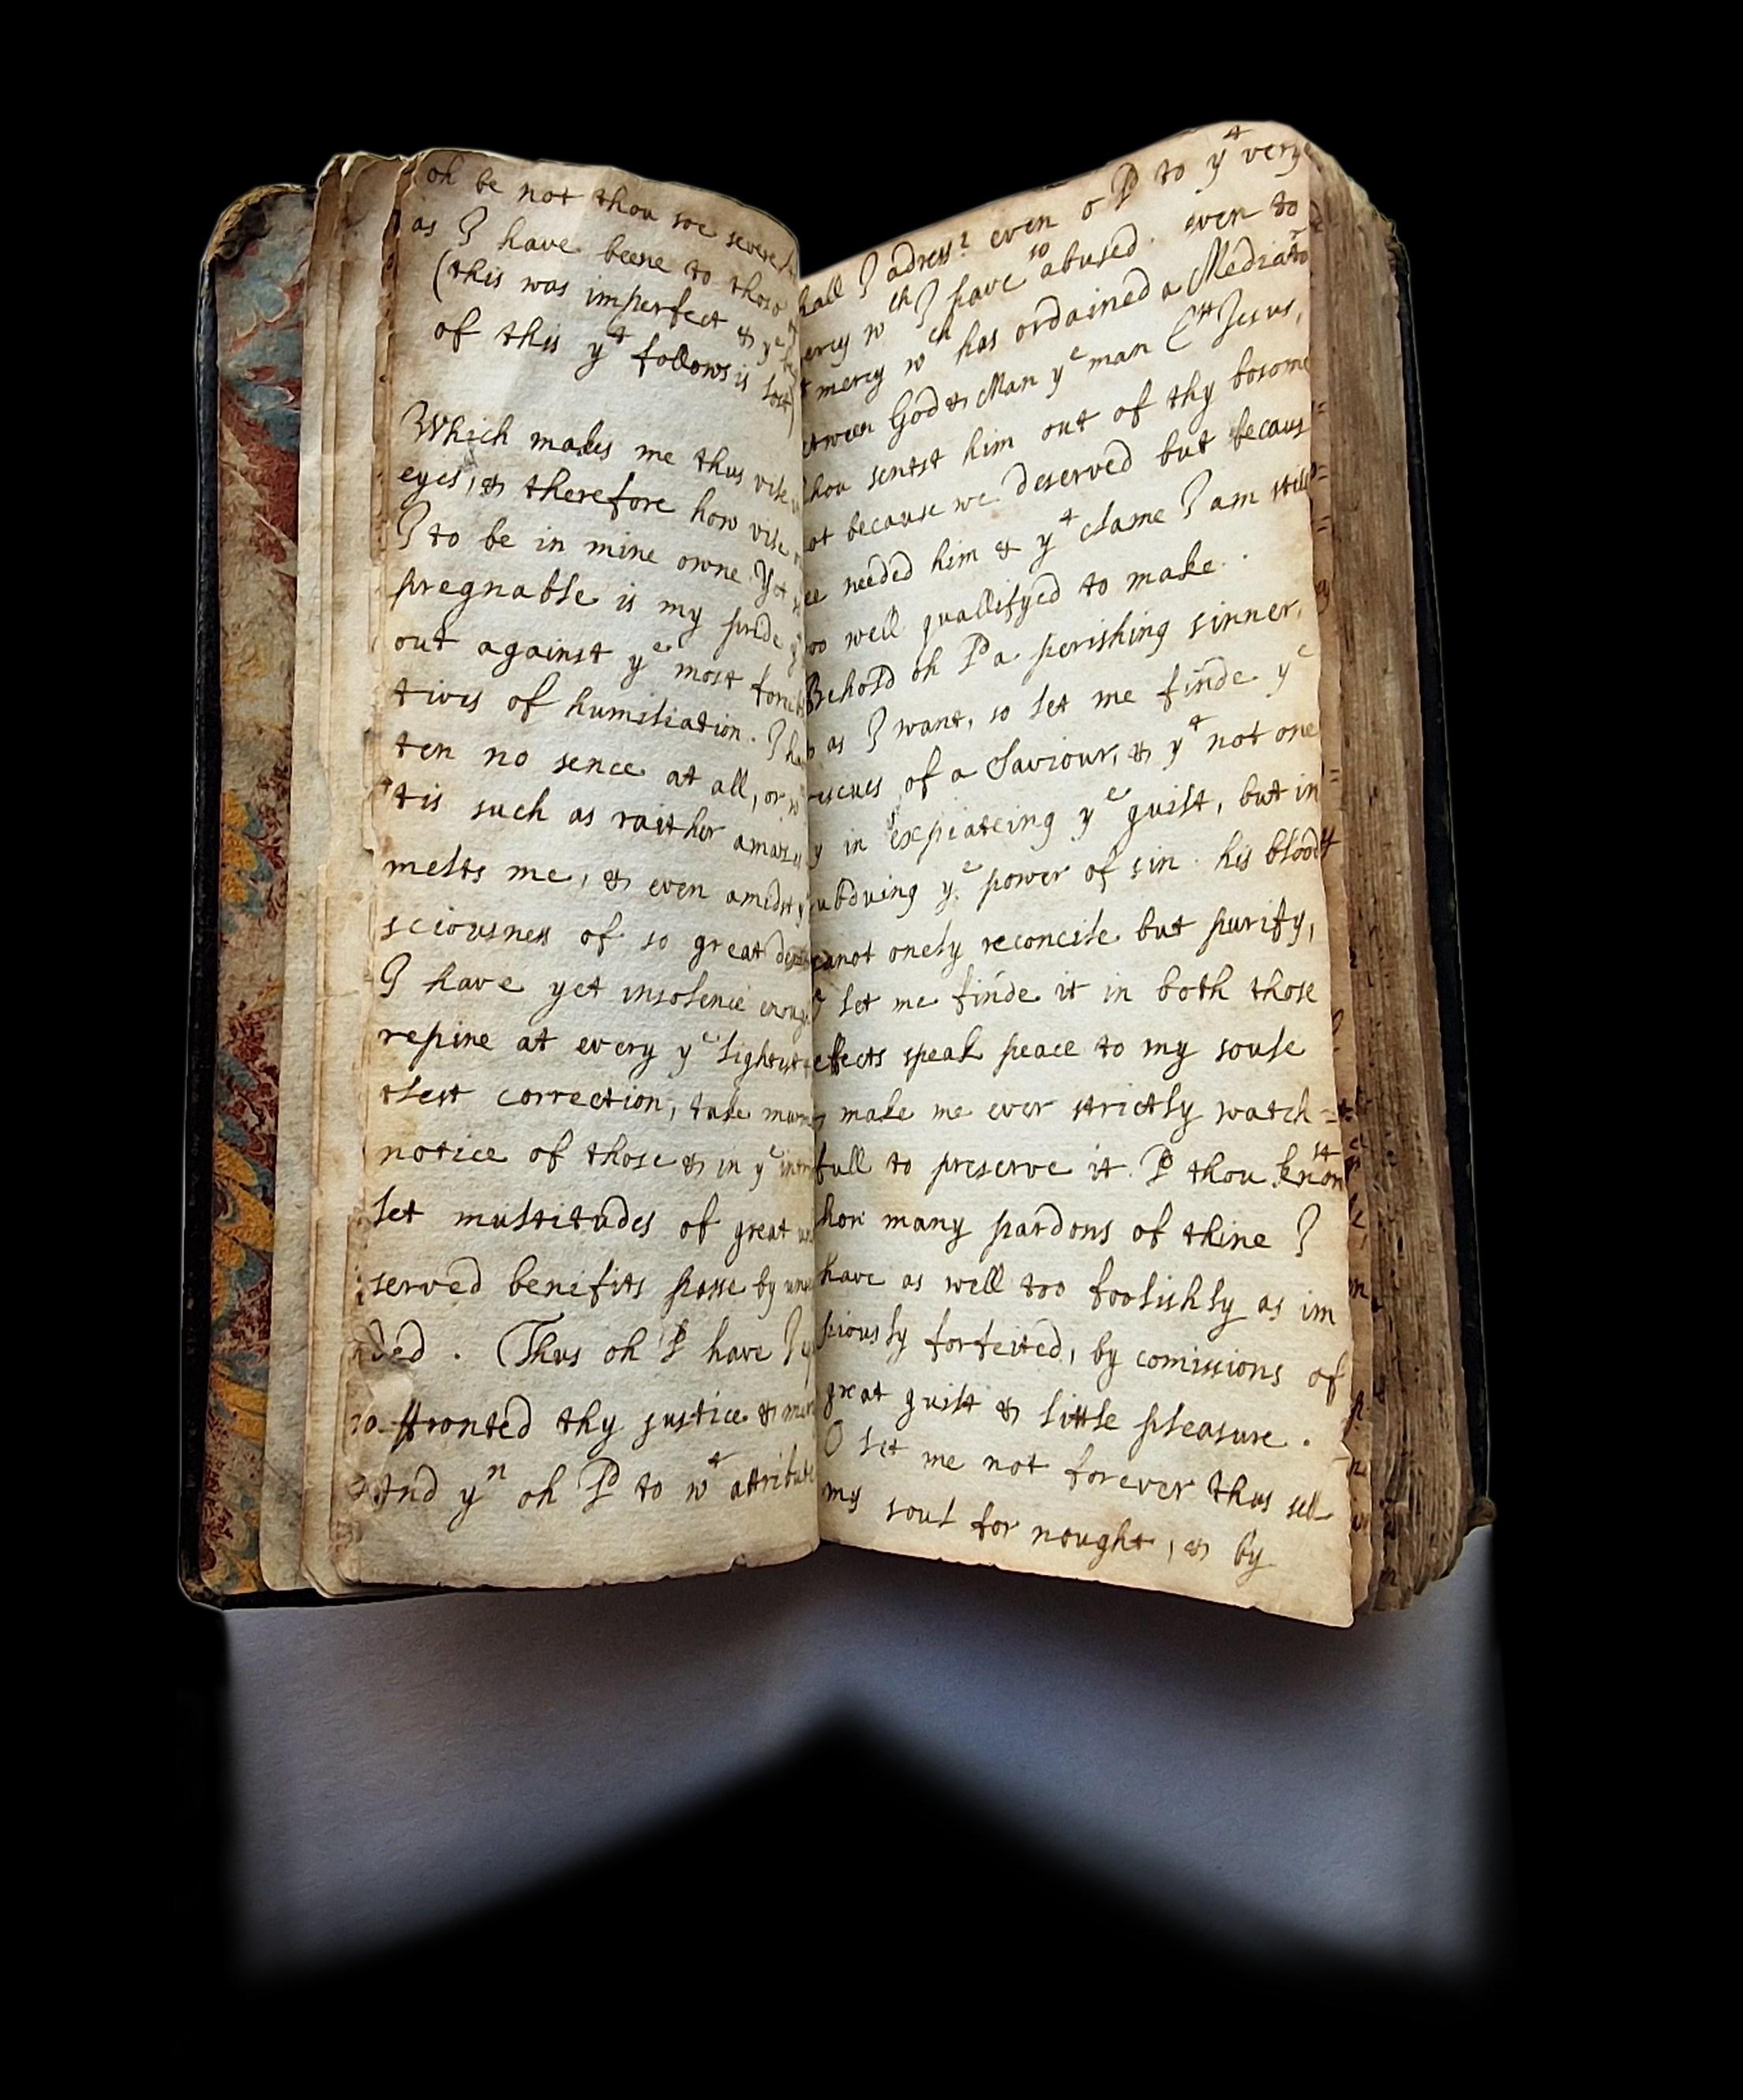 oh be not thou soe severe
as I have beene to those
(this was imperfect & yᵉ
of this yᵗ follows is lost)
Which makes me thus vile
eyes, & therefore how vile
I to be in mine owne. Yet
pregnable is my pride
out against yᵉ most
tives of humiliation. I
ten no sence at all, or
'tis such as raither
melts me, & even amidst
sciousness of so great
I have yet insolence
repine at every yᵉ
tlest correction, take
notice of those & in yᵉ
let multitudes of great
served benefits passe by
ded . Thus oh Ld have I
fronted thy justice &
And yⁿ oh Ld to wᵗ attribute
hall I adress? even o Ld to yᵗ very
ercy wᶜʰ I have so abused. even to
mercy wᶜʰ has ordained a Mediato
etween God & Man yᵉ man Cʰᵗ Jesus,
hou sentst him out of thy bosome
ot because we deserved but becaus
ee needed him & yᵗ clame I am still
oo well quallifyed to make.
Behold oh Ld a perishing sinner,
as I want, so let me finde yᵉ
rescues of a Saviour, & yᵗ not one
y in expiateing yᵉ guilt, but in
ubduing yᵉ power of sin. his blood
canot onely reconcile but purify,
let me finde it in both those
effects speak peace to my soule
make me ever strictly watch=
full to preserve it. Ld thou knowˢᵗ
how many pardons of thine I
have as well too foolishly as im
piously forfeited, by comissions of
great guilt & little pleasure .
O let me not forever thus sell
my soul for nought, & by